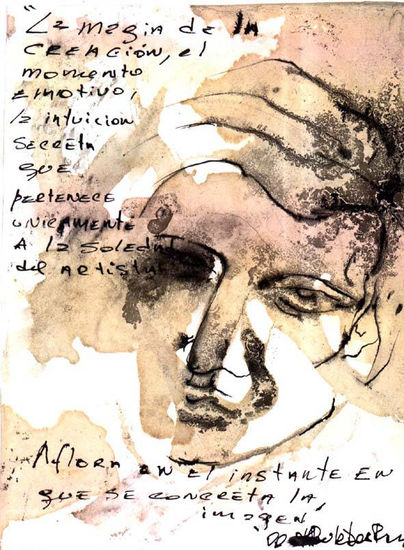 "La magia de la
CREACIÓN, el
momento
EMOTIVO,
la intuicion
SECRETA
QUE
pertenece
UNICAMENTE
A la soledad
del ARTISTA
Aflora en el instante EN
QUE SE CONCRETA LA
imagen"